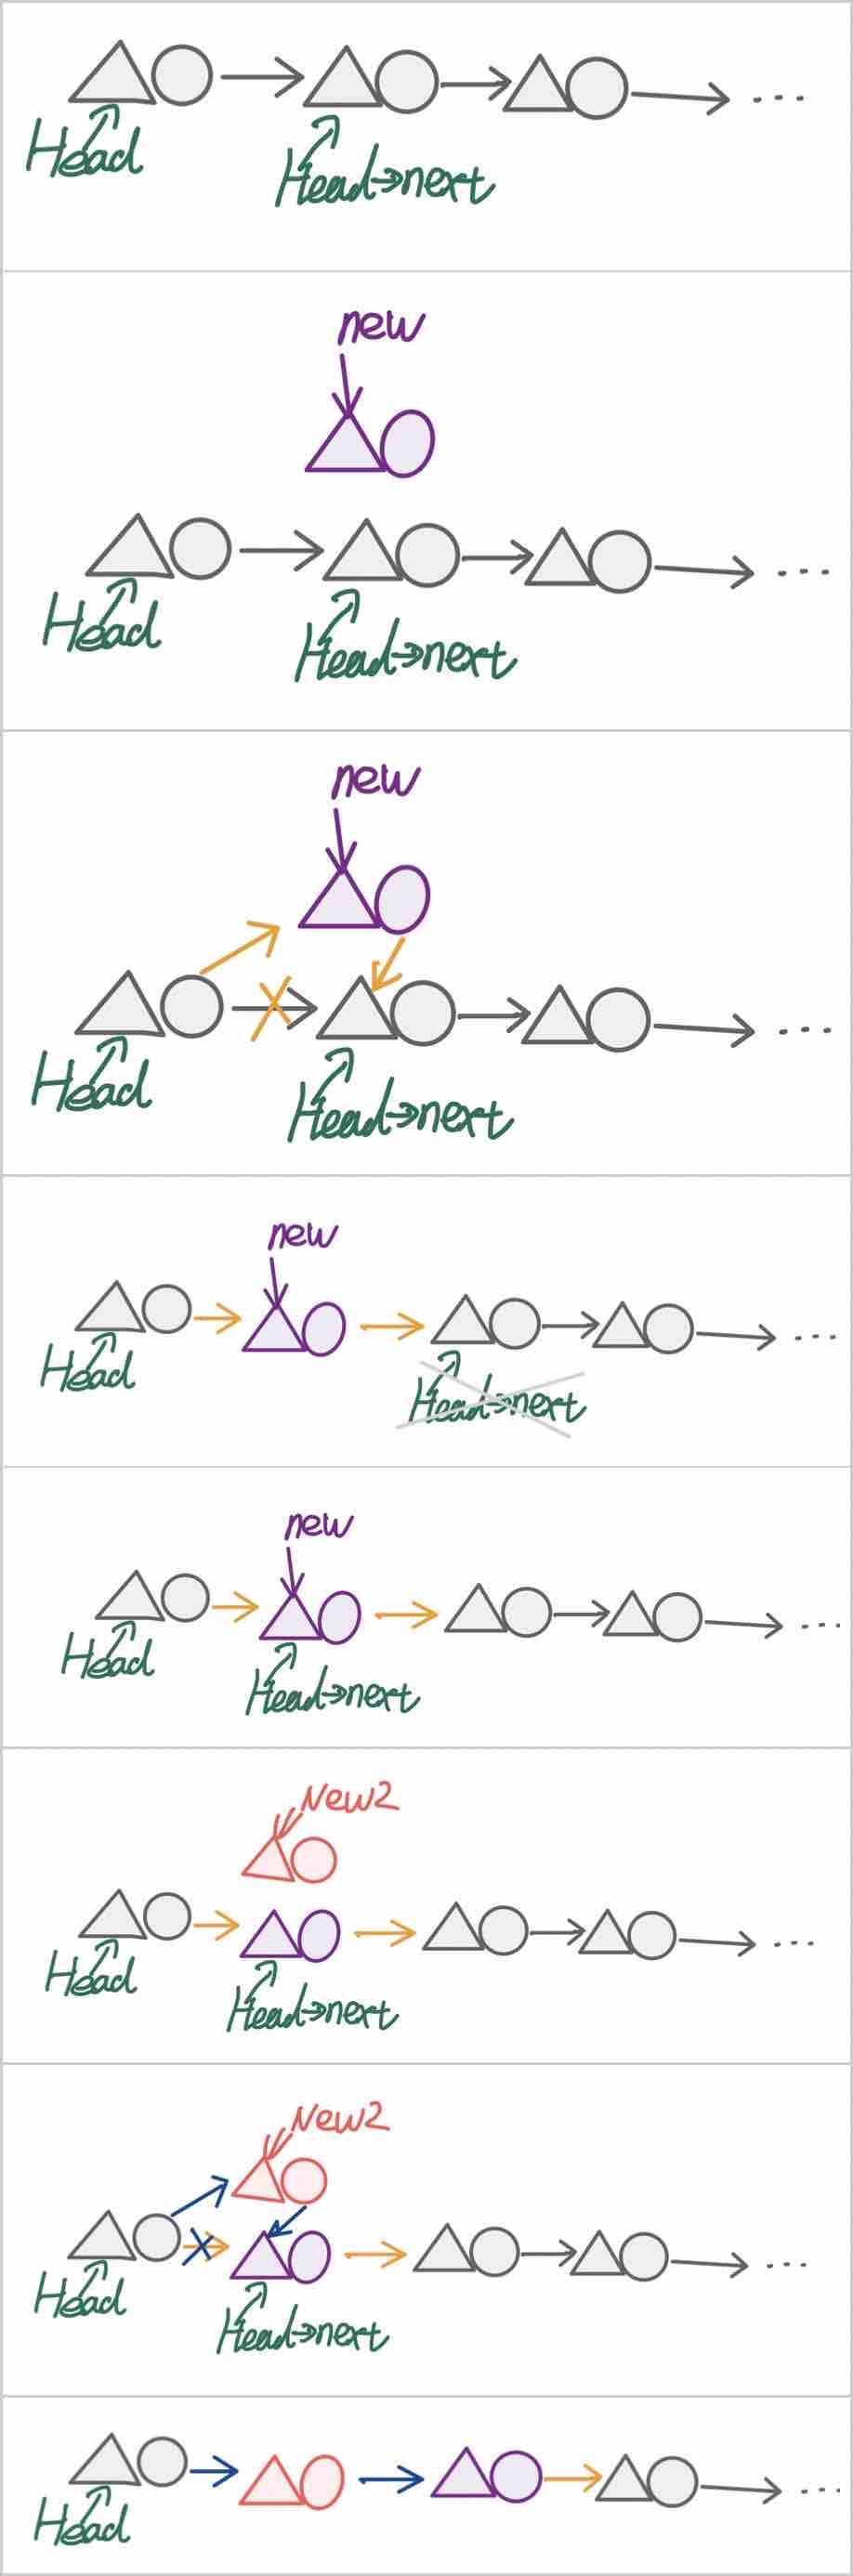 Head
Head→next
new
Head
Head→next
new
Head
Head→next
new
Head
Head→next
new
Head
Head→next
New2
Head
Head→next
New2
Head
Head→next
Head